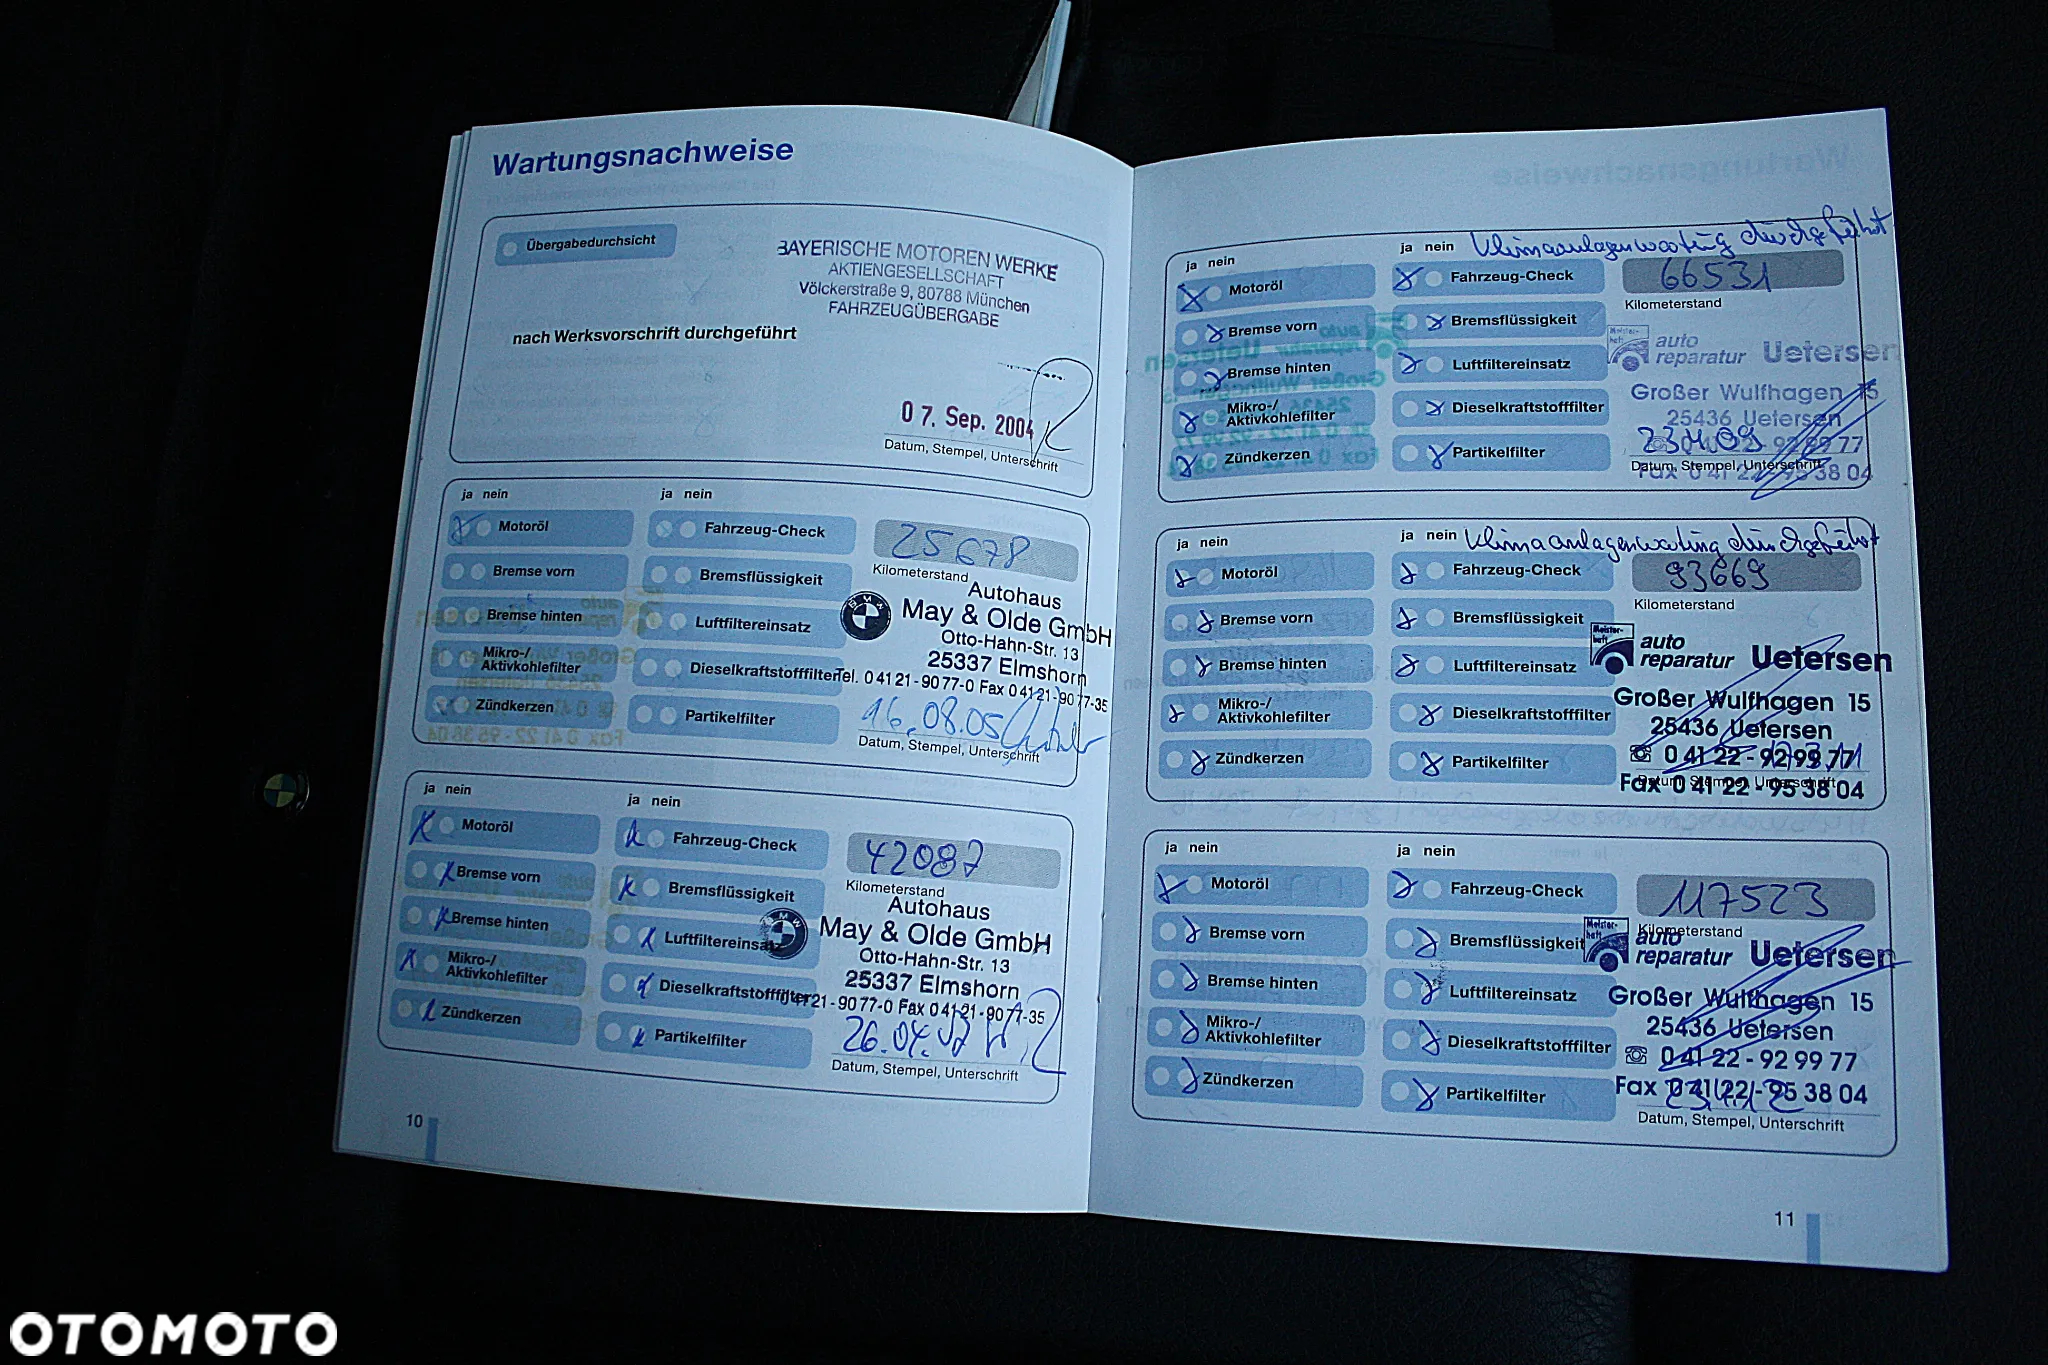 Wartungsnachweise
Übergabedurchsicht
BAYERISCHE MOTOREN WERKE
AKTIENGESELLSCHAFT
Völckerstraße 9, 80788 München
FAHRZEUGÜBERGABE
nach Werksvorschrift durchgeführt
07. Sep. 2004
Datum, Stempel, Unterschrift
ja nein
ja nein
Motoröl
Fahrzeug-Check
25678
Kilometerstand
Bremse vorn
Bremsflüssigkeit
Bremse hinten
Luftfiltereinsatz
Mikro-/
Aktivkohlefilter
Dieselkraftstofffilter
Zündkerzen
Partikelfilter
Autohaus
May & Olde GmbH
Otto-Hahn-Str. 13
25337 Elmshorn
Tel. 0 41 21 - 90 77-0 Fax 0 41 21 - 90 77-35
16.08.05
Datum, Stempel, Unterschrift
ja nein
ja nein
Motoröl
Fahrzeug-Check
42087
Kilometerstand
Bremse vorn
Bremsflüssigkeit
Bremse hinten
Luftfiltereinsatz
Mikro-/
Aktivkohlefilter
Dieselkraftstofffilter
Zündkerzen
Partikelfilter
BMW
Autohaus
May & Olde GmbH
Otto-Hahn-Str. 13
25337 Elmshorn
21 - 90 77-0 Fax 0 41 21 - 90 77-35
26.04.07
Datum, Stempel, Unterschrift
10
ja nein
ja nein
Klimaanlagenwartung durchgeführt
Motoröl
Fahrzeug-Check
66531
Kilometerstand
Bremse vorn
Bremsflüssigkeit
Bremse hinten
Luftfiltereinsatz
Mikro-/
Aktivkohlefilter
Dieselkraftstofffilter
Zündkerzen
Partikelfilter
Meister-
haft
auto
reparatur Uetersen
Großer Wulfhagen 15
25436 Uetersen
0 41 22 - 92 99 77
Fax 0 41 22 - 95 38 04
Datum, Stempel, Unterschrift
ja nein
ja nein
Klimaanlagenwartung durchgeführt
Motoröl
Fahrzeug-Check
93669
Kilometerstand
Bremse vorn
Bremsflüssigkeit
Bremse hinten
Luftfiltereinsatz
Mikro-/
Aktivkohlefilter
Dieselkraftstofffilter
Zündkerzen
Partikelfilter
Meister-
haft
auto
reparatur Uetersen
Großer Wulfhagen 15
25436 Uetersen
☏ 0 41 22 - 92 99 77
Fax 0 41 22 - 95 38 04
Datum, Stempel, Unterschrift
ja nein
ja nein
Motoröl
Fahrzeug-Check
117523
Kilometerstand
Bremse vorn
Bremsflüssigkeit
Bremse hinten
Luftfiltereinsatz
Mikro-/
Aktivkohlefilter
Dieselkraftstofffilter
Zündkerzen
Partikelfilter
Meister-
haft
auto
reparatur Uetersen
Großer Wulfhagen 15
25436 Uetersen
☏ 0 41 22 - 92 99 77
Fax 0 41 22 - 95 38 04
Datum, Stempel, Unterschrift
11
OTOMOTO